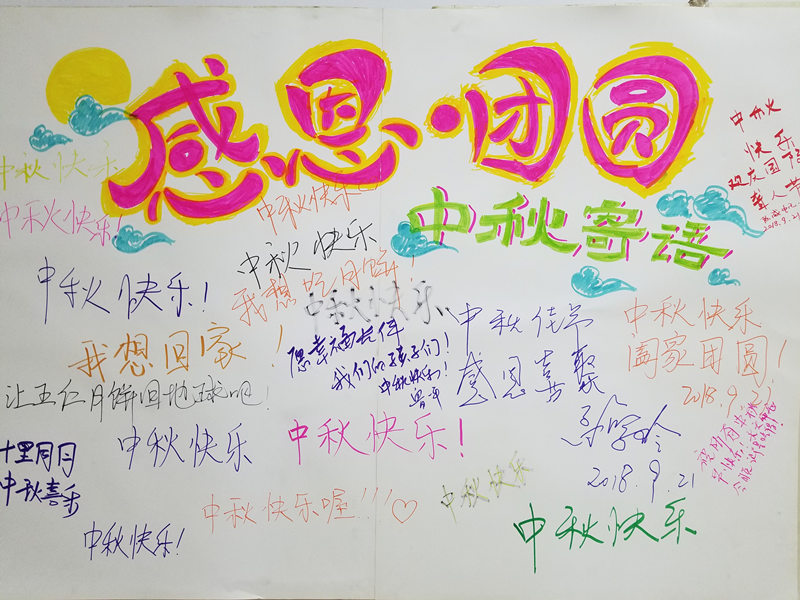 感恩·团圆
中秋寄语
中秋快乐
中秋快乐!
中秋快乐
中秋快乐
中秋快乐!
我想吃月饼!
中秋快乐
我想回家!
愿幸福老伴
我们的孩子们!
中秋快乐!
中秋佳节
感恩喜聚
2018.9.21
中秋快乐
阖家团圆!
2018.9.21
中秋快乐
欢庆国
聋人
2018.9.21
让五仁月饼回地球吧!
十里同月
中秋喜乐
中秋快乐
中秋快乐!
中秋快乐
中秋快乐喔!!!♡
中秋快乐!
中秋快乐